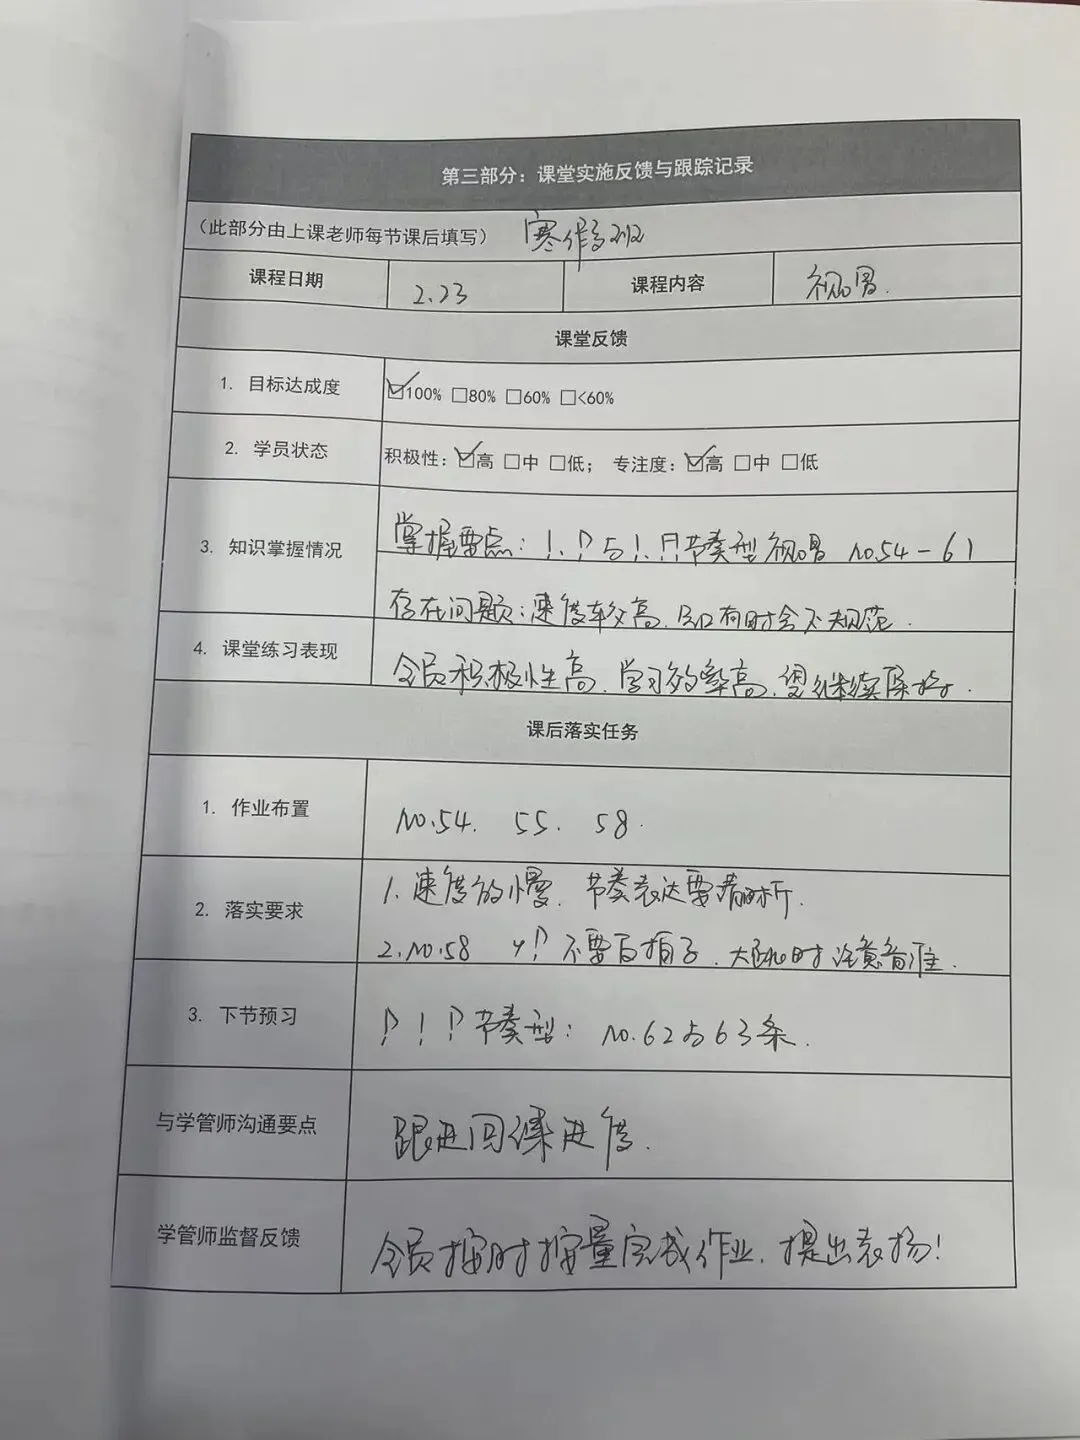 第三部分：课堂实施反馈与跟踪记录
（此部分由上课老师每节课后填写） 寒假班
课程日期 2.23 课程内容 视唱.
课堂反馈
1. 目标达成度 ☑100% □80% □60% □<60%
2. 学员状态 积极性：☑高 □中 □低； 专注度：☑高 □中 □低
3. 知识掌握情况 掌握要点：节奏型视唱 No.54-61
存在问题：速度较高, 有时会不规范.
4. 课堂练习表现 全员积极性高, 学习效率高, 望继续保持.
课后落实任务
1. 作业布置 No.54. 55. 58.
2. 落实要求 1. 速度放慢, 节奏表达要清晰.
2. No.58 不要丢拍子, 时注意音准.
3. 下节预习 节奏型: No.62与63条.
与学管师沟通要点 跟进回课进度.
学管师监督反馈 全员按时按量完成作业, 提出表扬!